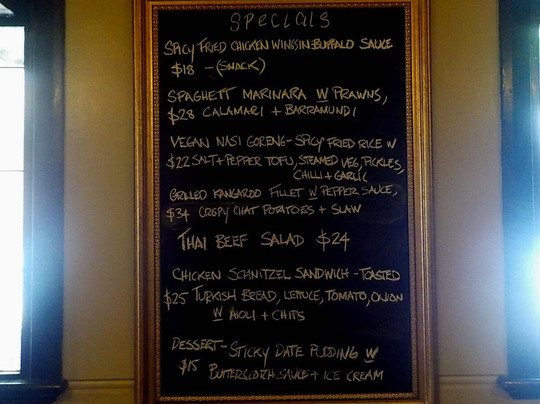 SPECIALS
SPICY FRIED CHICKEN WINGS IN BUFFALO SAUCE
$18 - (SNACK)
SPAGHETT MARINARA W PRAWNS,
$28 CALAMARI + BARRAMUNDI
VEGAN NASI GORENG - SPICY FRIED RICE W
$22 SALT + PEPPER TOFU, STEAMED VEG, PICKLES,
CHILLI + GARLIC
GRILLED KANGAROO FILLET W PEPPER SAUCE,
$34 CRISPY CHAT POTATOES + SLAW
THAI BEEF SALAD $24
CHICKEN SCHNITZEL SANDWICH - TOASTED
$25 TURKISH BREAD, LETTUCE, TOMATO, ONION
W AIOLI + CHIPS
DESSERT - STICKY DATE PUDDING W
$15 BUTTERSCOTCH SAUCE + ICE CREAM